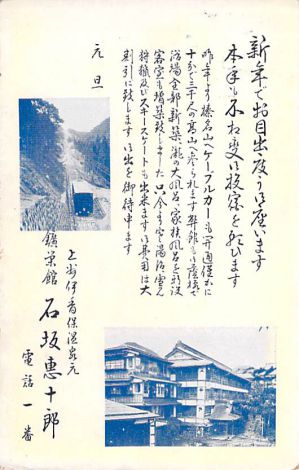 新年で お目出度う御座います
本年も不相変御投宿を願ひます
昨年より榛名山へケーブルカーも開通僅かに
十分で三千尺の高山へ登られます 弊館も御蔭様で
浴場全部新築 瀧の大風呂、家族風呂を新設
客室も増築致しました 只今より
狩猟及びスキースケートも出来ます 御費用は大
割引に致します 御出を御待申ます
元旦
上州伊香保温泉元
鑛栄館 石坂恵十郎
電話一番